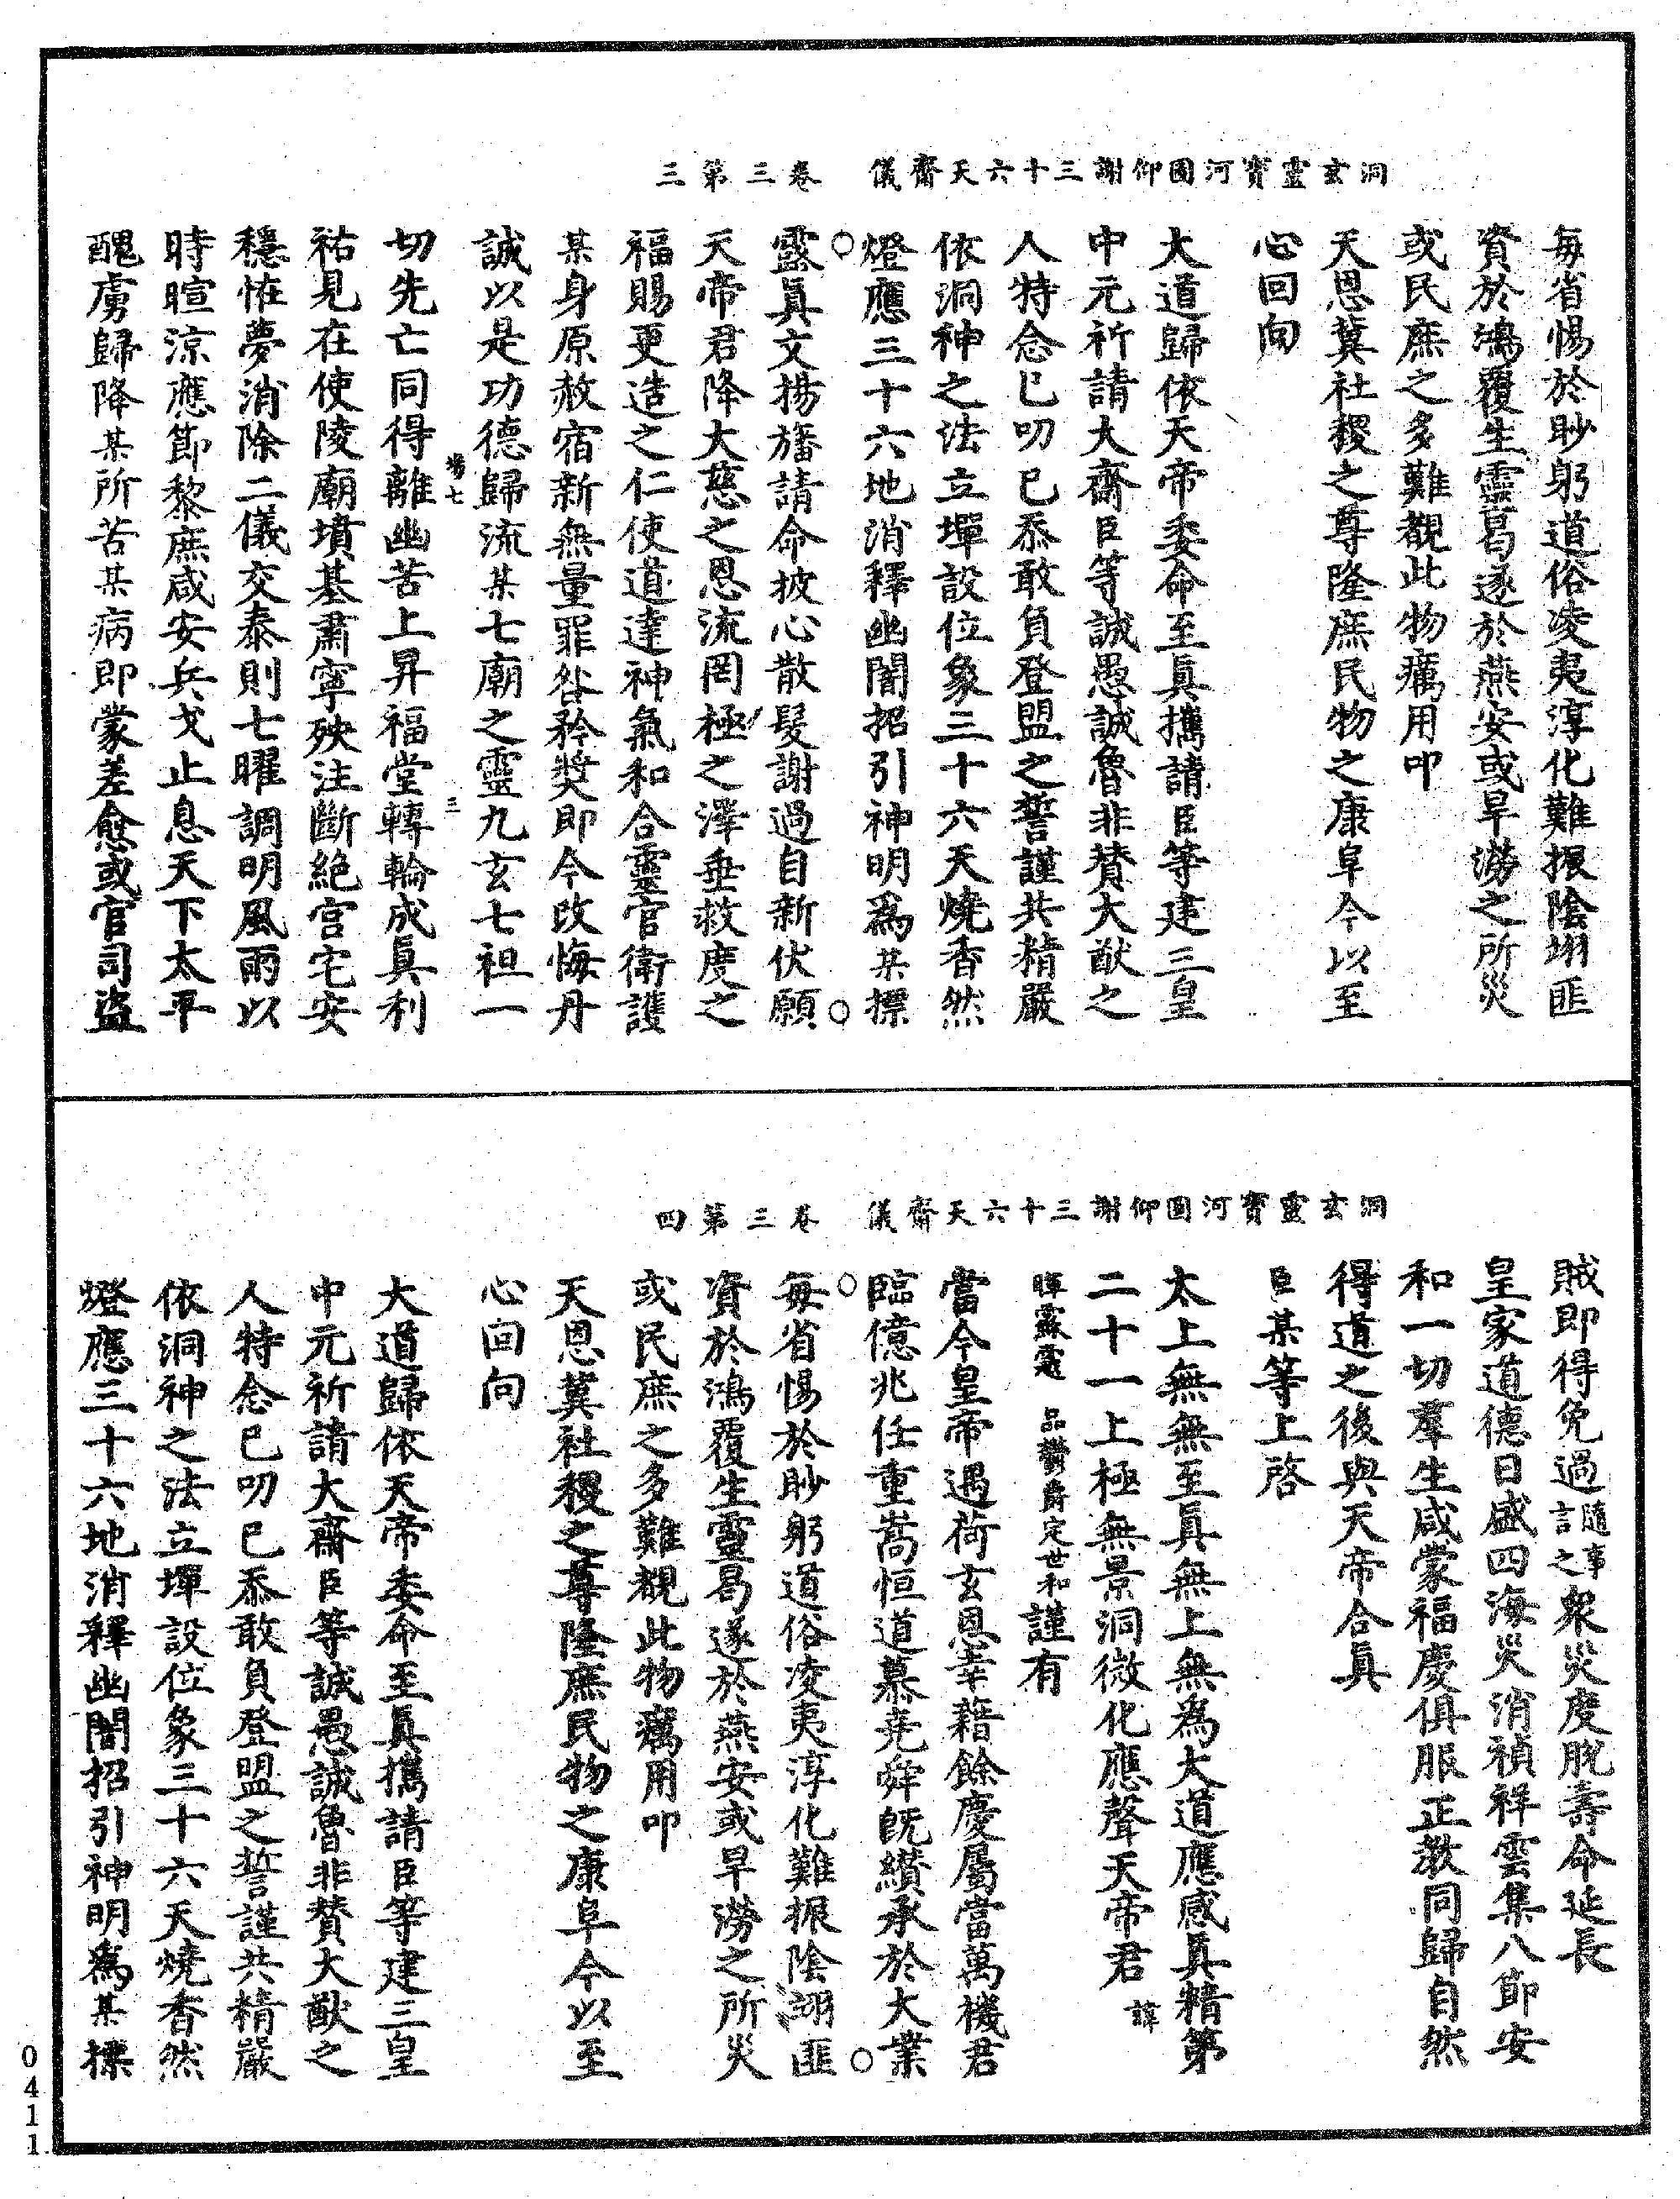 洞玄靈寶河圖仰謝三十六天齋儀　卷三第三
每省惕於眇躬道俗凌夷淳化難振陰翊匪
資於鴻覆生靈曷遂於燕安或旱澇之所災
或民庶之多難覩此物癘用叩
天恩冀社稷之尊隆庶民物之康阜今以至
心回向
大道歸依天帝委命至真攜請臣等建三皇
中元祈請大齋臣等誠愚誠魯非賛大猷之
人特念已叨已忝敢負登盟之誓謹共精嚴
依洞神之法立墠設位象三十六天燒香然
燈應三十六地消釋幽闇招引神明爲某摽
露真文揚旛請命披心散髮謝過自新伏願
天帝君降大慈之恩流罔極之澤垂救度之
福賜更造之仁使道達神氣和合靈官衛護
某身原赦宿新無量罪咎矜奬即今改悔丹
誠以是功德歸流某七廟之靈九玄七祖一
場七　三
切先亡同得離幽苦上昇福堂轉輪成真利
祐見在使陵廟墳基肅寧殃注斷絶宫宅安
穩恠夢消除二儀交泰則七曜調明風雨以
時暄涼應節黎庶咸安兵戈止息天下太平
醜虜歸降某所苦某病即蒙差愈或官司盜
洞玄靈寶河圖仰謝三十六天齋儀　卷三第四
賊即得免過隨事言之衆災度脫壽命延長
皇家道德日盛四海災消禎祥雲集八節安
和一切羣生咸蒙福慶俱服正教同歸自然
得道之後與天帝合真
臣某等上啓
太上無無至真無上無為大道應感真精第
二十一上極無景洞微化應聲天帝君諱
定世和謹有
當今皇帝遇荷玄恩幸藉餘慶屬當萬機君
臨億兆任重嵩恒道慕堯舜旣纘承於大業
每省惕於眇躬道俗凌夷淳化難振陰翊匪
資於鴻覆生靈曷遂於燕安或旱澇之所災
或民庶之多難覩此物癘用叩
天恩冀社稷之尊隆庶民物之康阜今以至
心回向
大道歸依天帝委命至真攜請臣等建三皇
中元祈請大齋臣等誠愚誠魯非賛大猷之
人特念已叨已忝敢負登盟之誓謹共精嚴
依洞神之法立墠設位象三十六天燒香然
燈應三十六地消釋幽闇招引神明爲某摽
0411